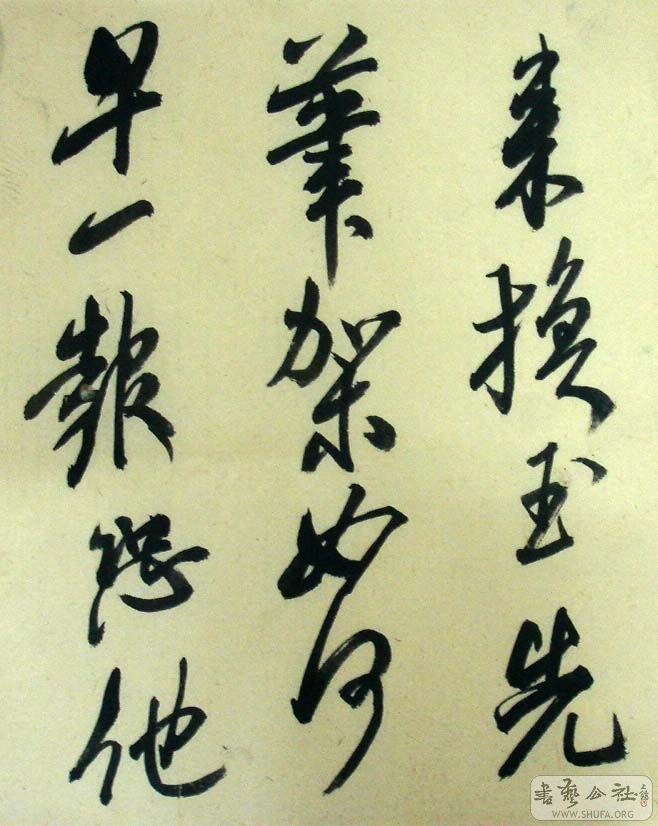 来换玉先
筆架如何
早一報恐他
書藝公社
WWW.SHUFA.ORG